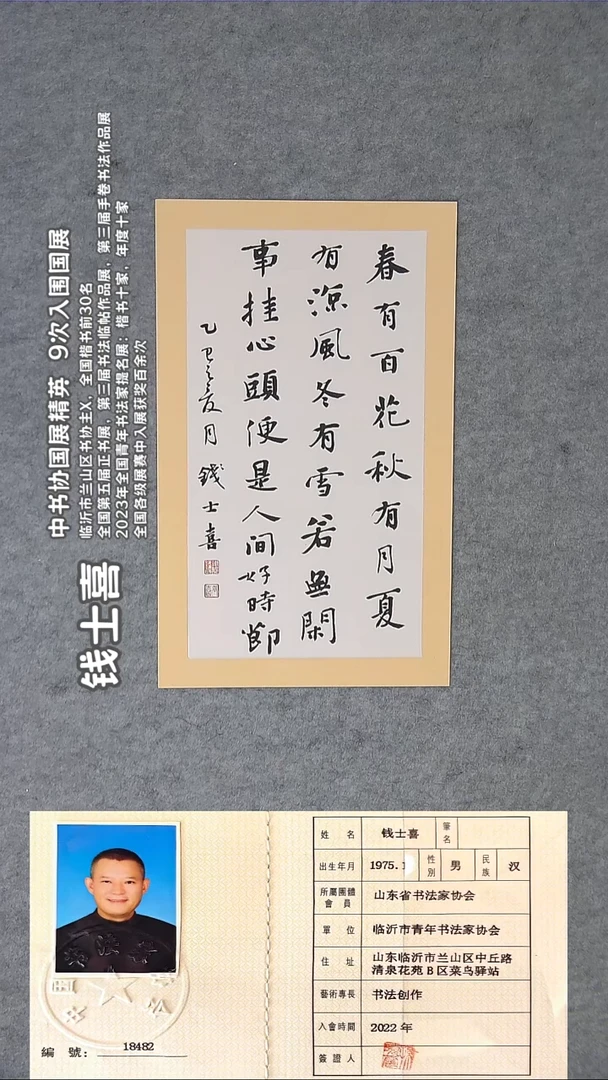 钱士喜
中书协国展精英 9次入围国展
临沂市兰山区书协主X，全国楷书前30名
全国第五届正书展，第三届书法临帖作品展，第三届手卷书法作品展
2023年全国青年书法家提名展：楷书十家，年度十家
全国各级展赛中入展获奖百余次
春有百花秋有月夏
有涼風冬有雪若無閑
事挂心頭便是人間好時節
乙巳之夏月 錢士喜
編 號：18482
姓 名 钱士喜 筆名
出生年月 1975.1 性別 男 民族 汉
所屬團體會員 山东省书法家协会
單 位 临沂市青年书法家协会
住 址 山东临沂市兰山区中丘路
清泉花苑 B 区菜鸟驿站
藝術專長 书法创作
入會時間 2022 年
簽證人